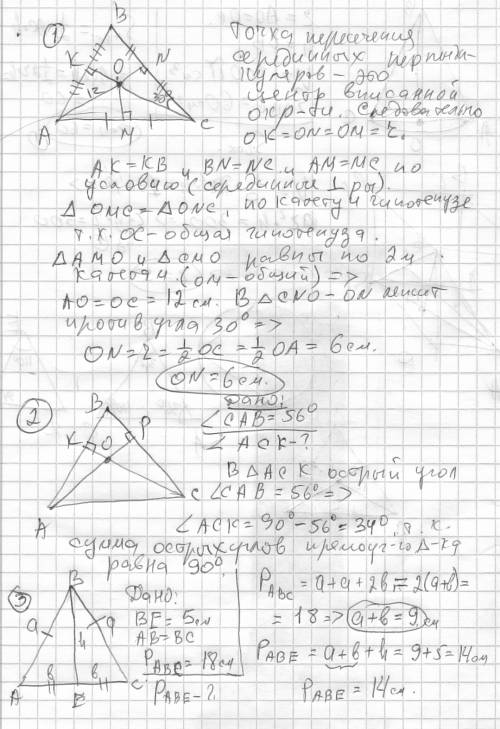 1
B
K
N
O
12
30°
A
M
C
Точка пересечения
серединных перпенди-
куляров - это
центр вписанной
окр-ти. Следовательно
OK=ON=OM=r.
AK=KB и BN=NC и AM=MC по
условию (серединные ⊥ ры).
△OMC=△ONC, по катету и гипотенузе
т.к. OC-общая гипотенуза.
△AMO и △CMO равны по 2м
катетам (OM-общий) =>
AO=OC=12см. В △CNO-ON лежит
против угла 30° =>
ON=r=1/2 OC=1/2 OA=6см.
ON=6см.
2
B
K
O
P
A
C
Дано:
∠CAB=56°
∠ACK-?
В △ACK острый угол
∠CAB=56° =>
∠ACK=90°-56°=34°, т.к.
сумма острых углов прямоуг-го △-ка
равна 90°.
3
B
a
a
h
A
в
в
E
C
Дано:
BE=5см
AB=BC
P ABC=18см
P ABE-?
P ABC=a+a+2в=2(a+в)=
=18=> a+в=9см
P ABE=a+в+h=9+5=14см
P ABE=14см.